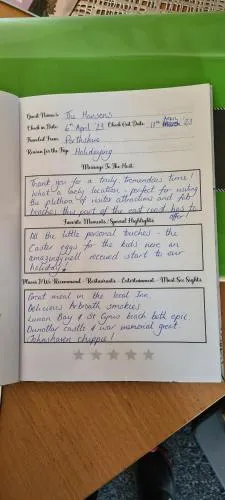 Guest Name/s: The Hansens
Check in Date: 6th April '23 Check Out Date: 11th April '23
Traveled From: Perthshire
Reason for the Trip: Holidaying
Message To The Host:
Thank you for a truly tremendous time!
What a lovely location, perfect for visiting
the plethora of visitor attractions and fab
beaches this part of the east coast has to
offer!
Favorite Moments/Special Highlights
All the little personal touches - the
Easter eggs for the kids were an
amazingly well received start to our
holiday!
Places I/We Recommend - Restaurants - Entertainment - Must See Sights
Great meal in the local Inn.
Delicious Arbroath smokies.
Lunan Bay & St Cyrus beach both epic.
Dunottar castle & war memorial great.
Johnshaven chippie!